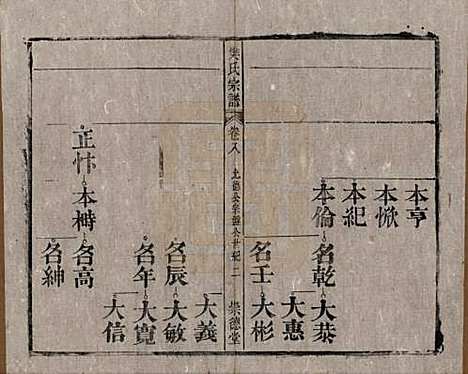 本亨
本㤞
本紀
本倫
名乾
大恭
大惠
名壬
大彬
氏宗譜
卷八
公世紀二
崇德堂
大義
名辰
大敏
名年
大寬
大信
正忭
本樹
名高
名紳